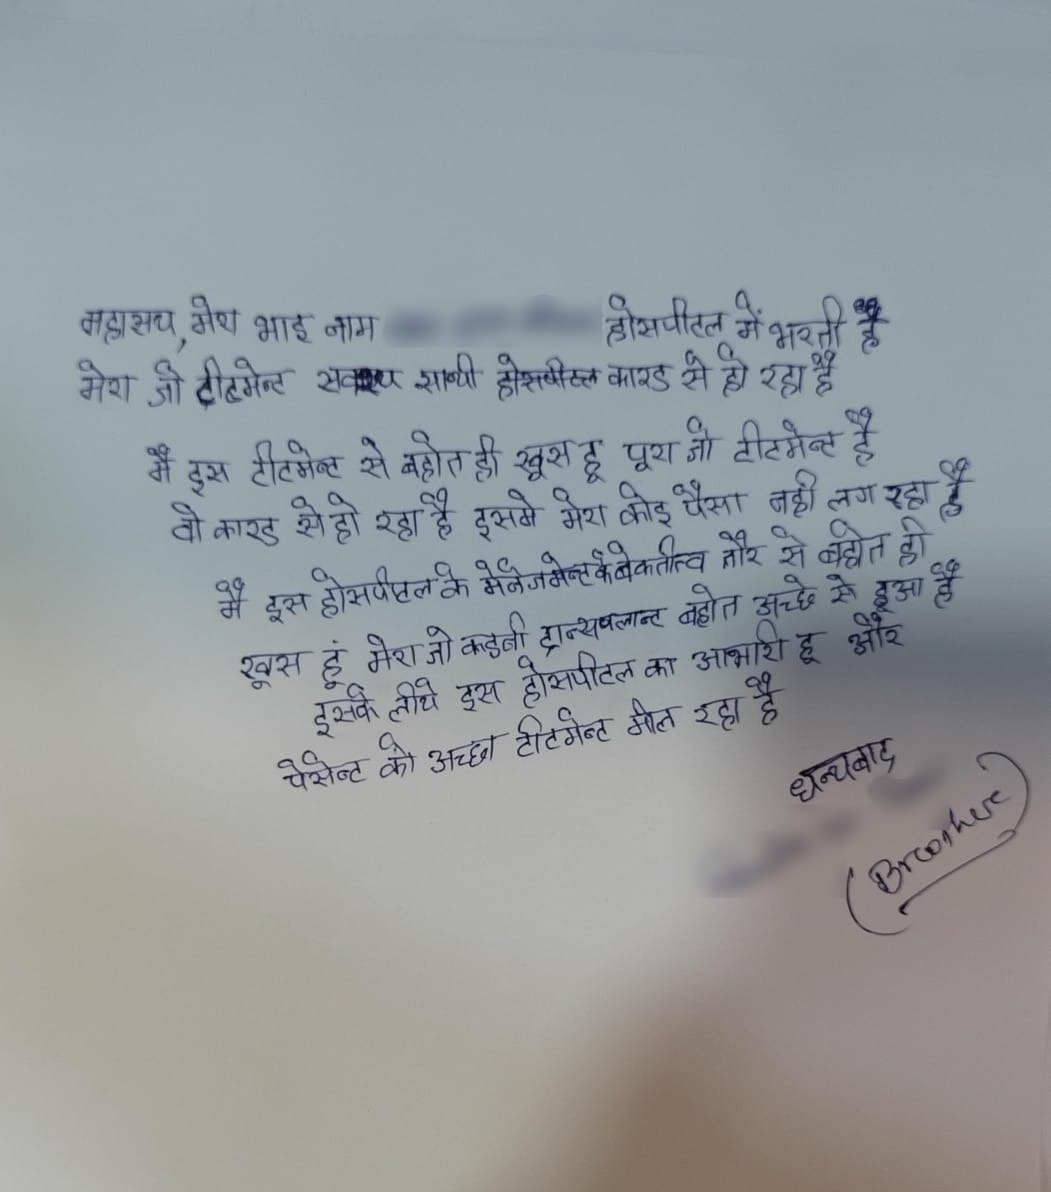 महासय, मेरा भाइ नाम होसपीटल में भरती है
मेरा जो टीटमेन्ट स्वास्थ्य साथी होसपीटल कारड से हो रहा है
मै इस टीटमेन्ट से बहोत ही खूस हू पूरा जो टीटमेन्ट है
वो कारड से हो रहा है इसमे मेरा कोइ पैसा नही लग रहा है
मै इस होसपीटल के मेनेजमेन्ट के बेकतीत्व तौर से बहोत ही
खूस हूं मेरा जो कडनी ट्रान्सपलान्ट बहोत अच्छे से हुआ है
इसके लीये इस होसपीटल का आभारी हू और
पेसेन्ट को अच्छा टीटमेन्ट मील रहा है
धन्यबाद